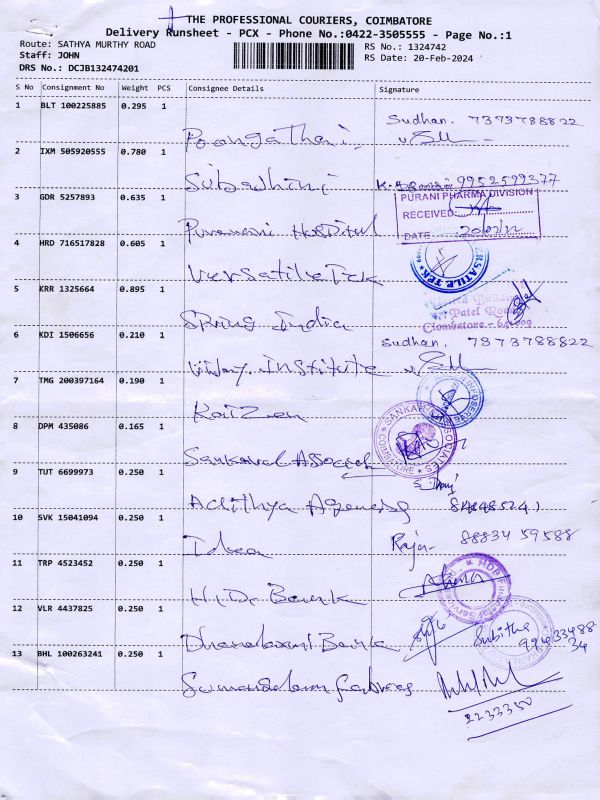 THE PROFESSIONAL COURIERS, COIMBATORE
Delivery Runsheet - PCX - Phone No.:0422-3505555 - Page No.:1
Route: SATHYA MURTHY ROAD
Staff: JOHN
DRS No.: DCJB132474201
RS No.: 1324742
RS Date: 20-Feb-2024
S No Consignment No Weight PCS Consignee Details Signature
1 BLT 100225885 0.295 1
Sudhan. 7373788822
Poongathai
2 IXM 505920555 0.780 1
Subashini
9952599377
3 GDR 5257893 0.635 1
PURANI PHARMA DIVISION
RECEIVED
DATE
Puramani Hospital
4 HRD 716517828 0.605 1
VERSATILE TEK
Versatile Tek
5 KRR 1325664 0.895 1
Patel Road
Coimbatore - 641009
Spring India
6 KDI 1506656 0.210 1
Sudhan. 7373788822
Vijay. Institute
7 TMG 200397164 0.190 1
Kaizen
8 DPM 435086 0.165 1
COIMBATORE
Sankaral Associates
9 TUT 6699973 0.250 1
Adithya Agency
10 SVK 15041094 0.250 1
Idea
Raja- 88834 59588
11 TRP 4523452 0.250 1
H.D. Bank
12 VLR 4437825 0.250 1
Dhanalaxmi Bank
Subitha
99433488
34
13 BHL 100263241 0.250 1
2233350